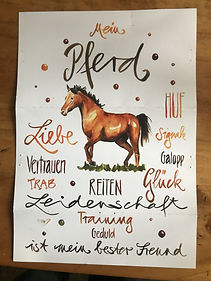 Mein
Pferd
HUF
Liebe
Signale
Vertrauen
Galopp
TRAB
REITEN
Glück
Leidenschaft
Training
Geduld
ist mein bester Freund